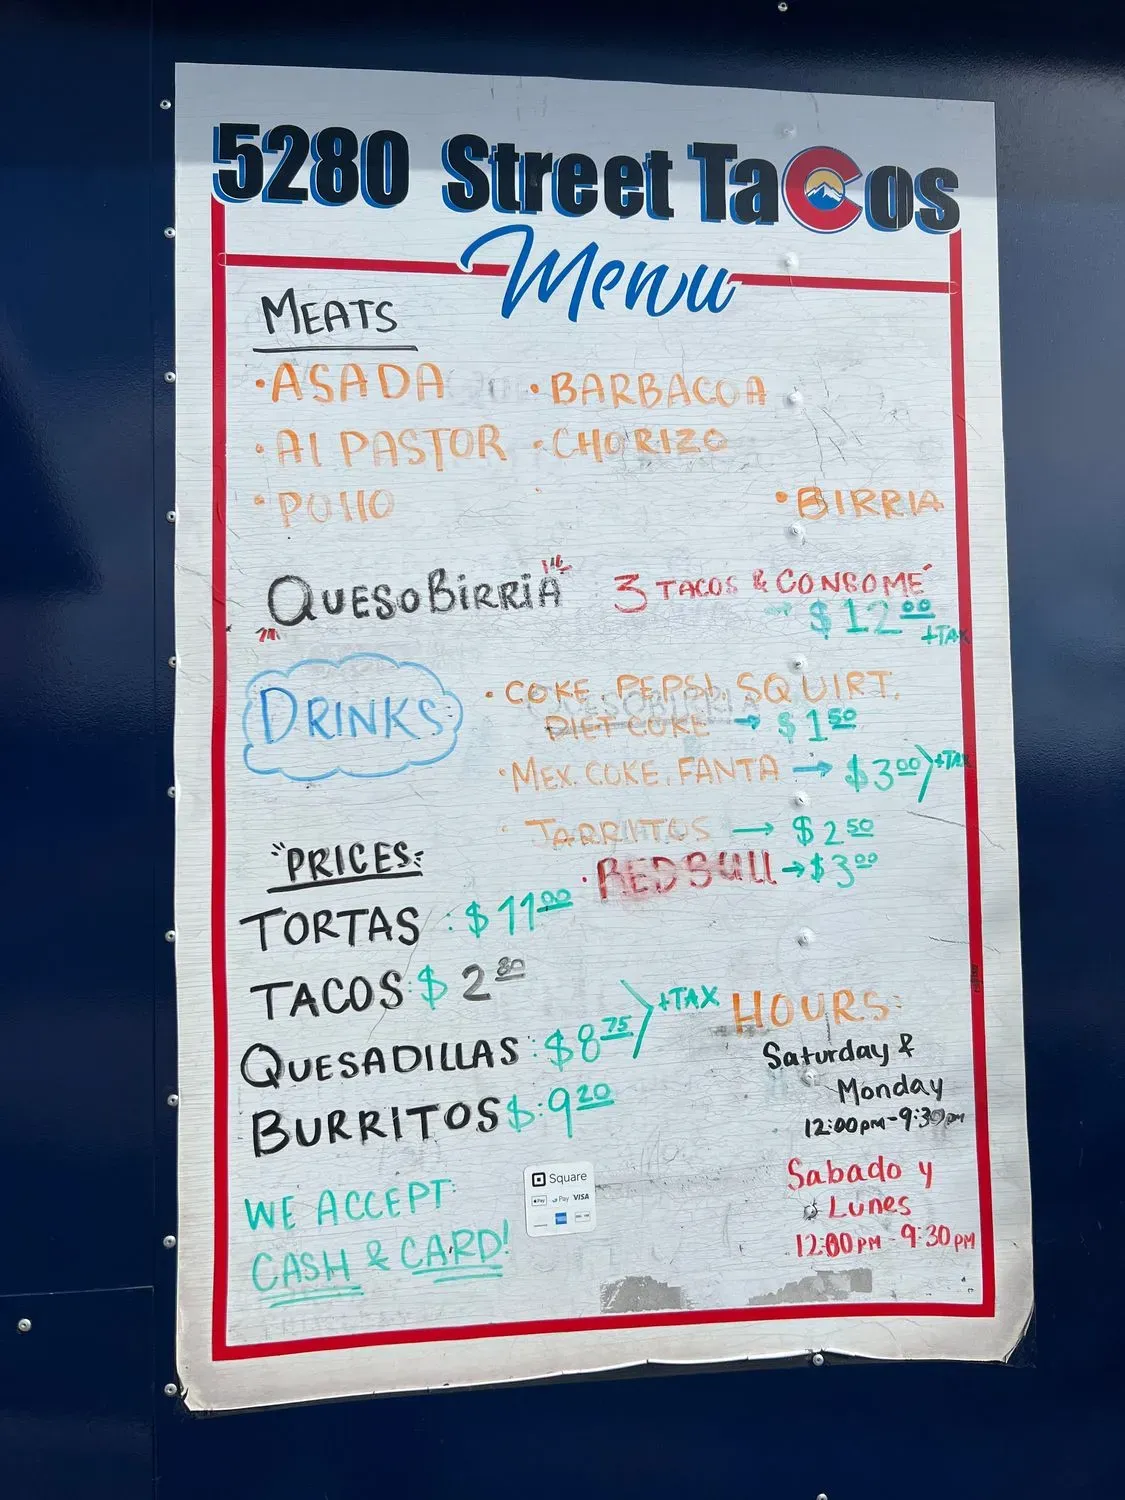 5280 Street Tacos
Menu
MEATS
•ASADA •BARBACOA
•Al PASTOR •CHORIZO
•POllO •BIRRIA
QUESOBiRRiA 3 TACOS & CONSOMÉ
→ $12.00
+TAX
DRINKS • COKE, PEPSI, SQUIRT,
DIET COKE → $1.50
•MEX. COKE, FANTA → $3.00 +TAX
• JARRITOS → $2.50
"PRICES: • REDBULL → $3.00
TORTAS : $11.00
TACOS: $2.80
+TAX HOURS:
QUESADILLAS: $8.75 Saturday &
Monday
BURRITOS $: 9.20 12:00pm-9:30pm
WE ACCEPT: Square Sabado y
Pay Pay VISA & Lunes
CASH & CARD! 12:00PM - 9:30PM